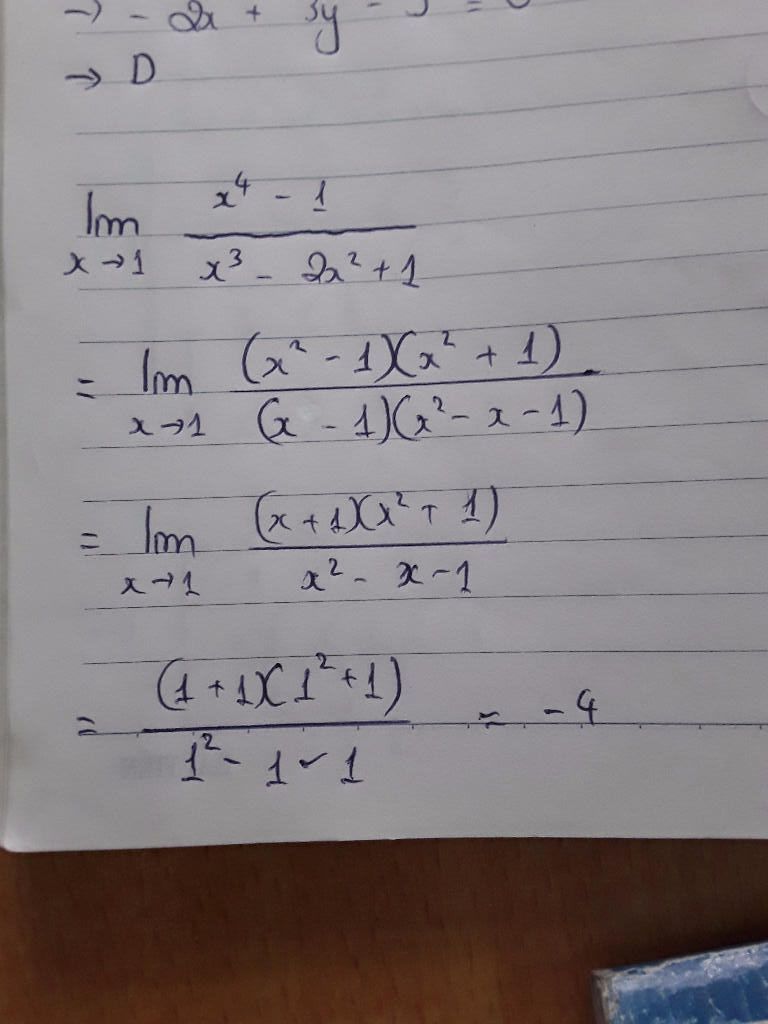 → - 2x + 3y - = 0
→ D
lim x→1 (x⁴ - 1) / (x³ - 2x² + 1)
= lim x→1 (x² - 1)(x² + 1) / (x - 1)(x² - x - 1)
= lim x→1 (x + 1)(x² + 1) / (x² - x - 1)
= (1 + 1)(1² + 1) / (1² - 1 - 1) = - 4